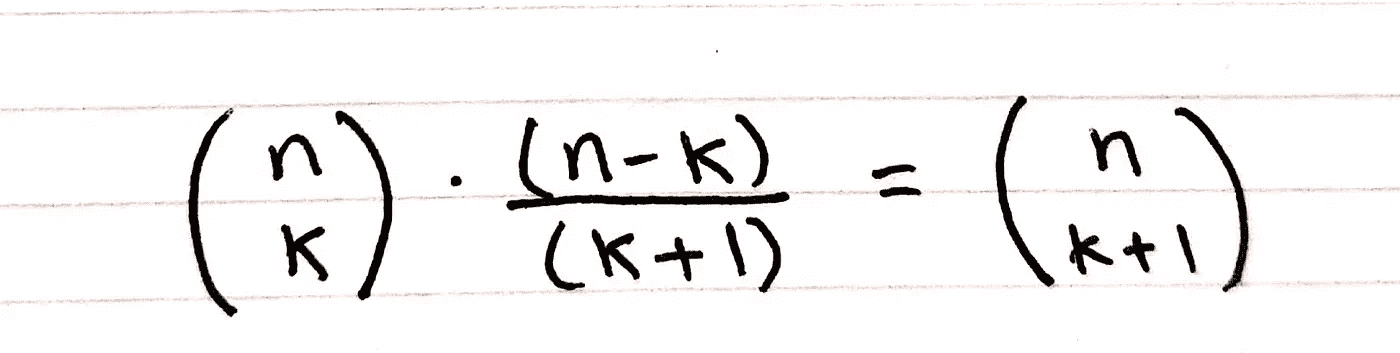 (n k) · (n-k)/(k+1) = (n k+1)